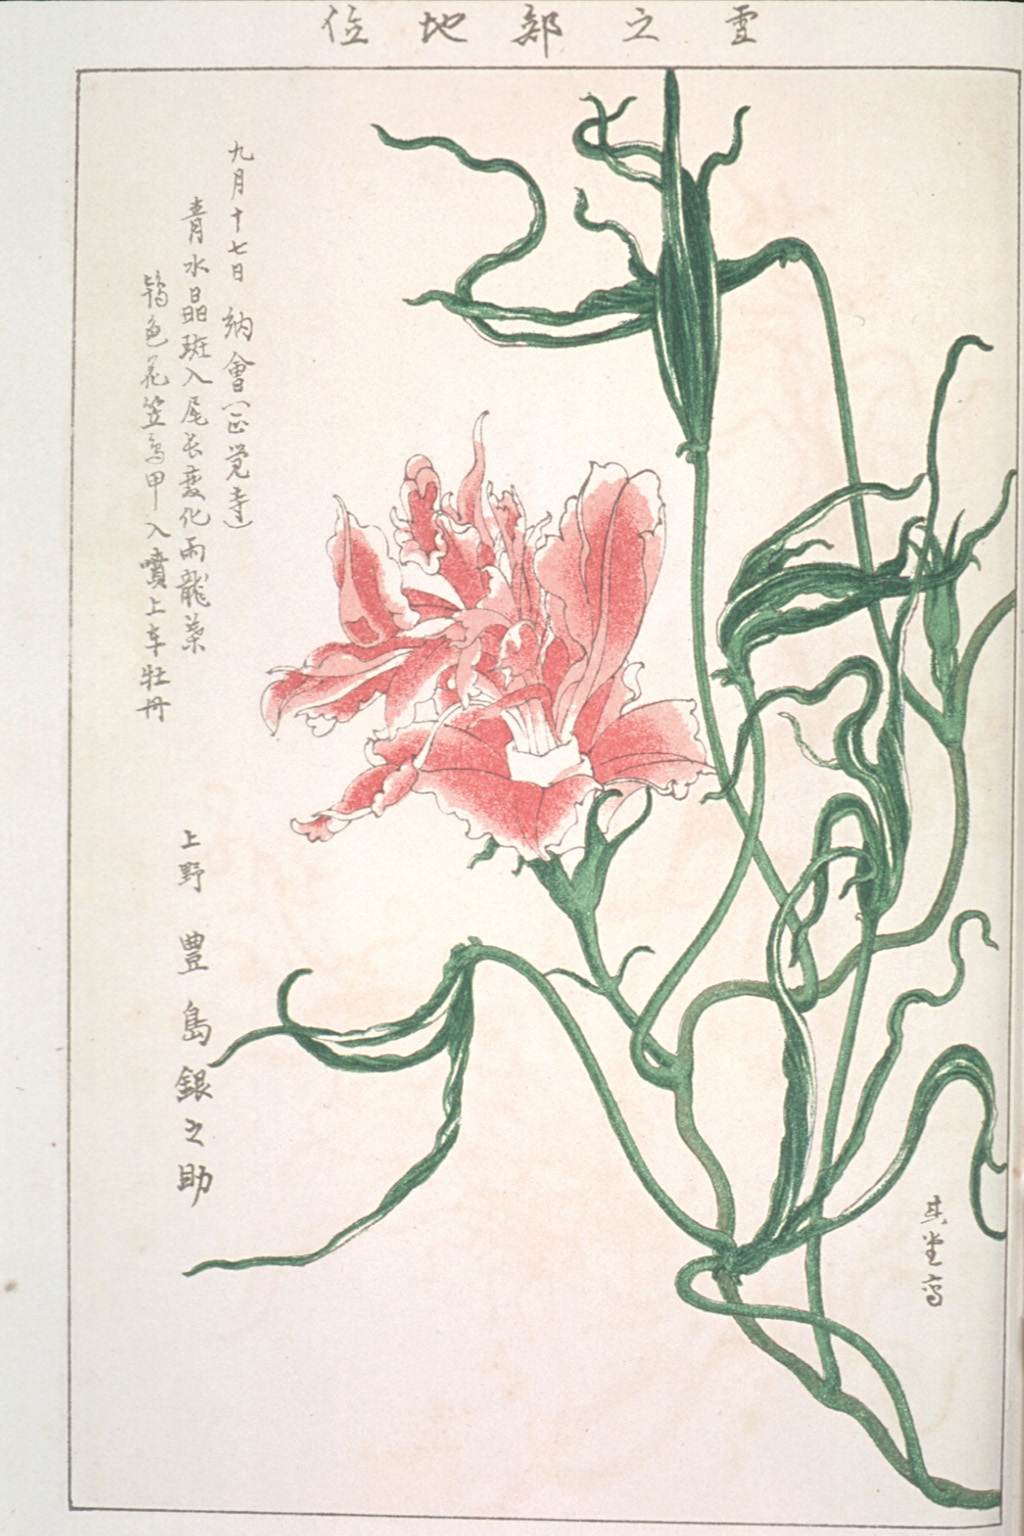 雪之部地位
九月十七日 納會（正覚寺）
青水晶斑入尾長変化雨龍葉
鴇色花笠鳥甲入噴上車牡丹
上野 豊島銀之助
其堂写